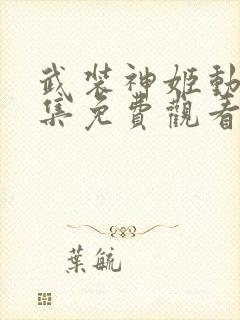 武装神姬動
集免費觀看
葉毓